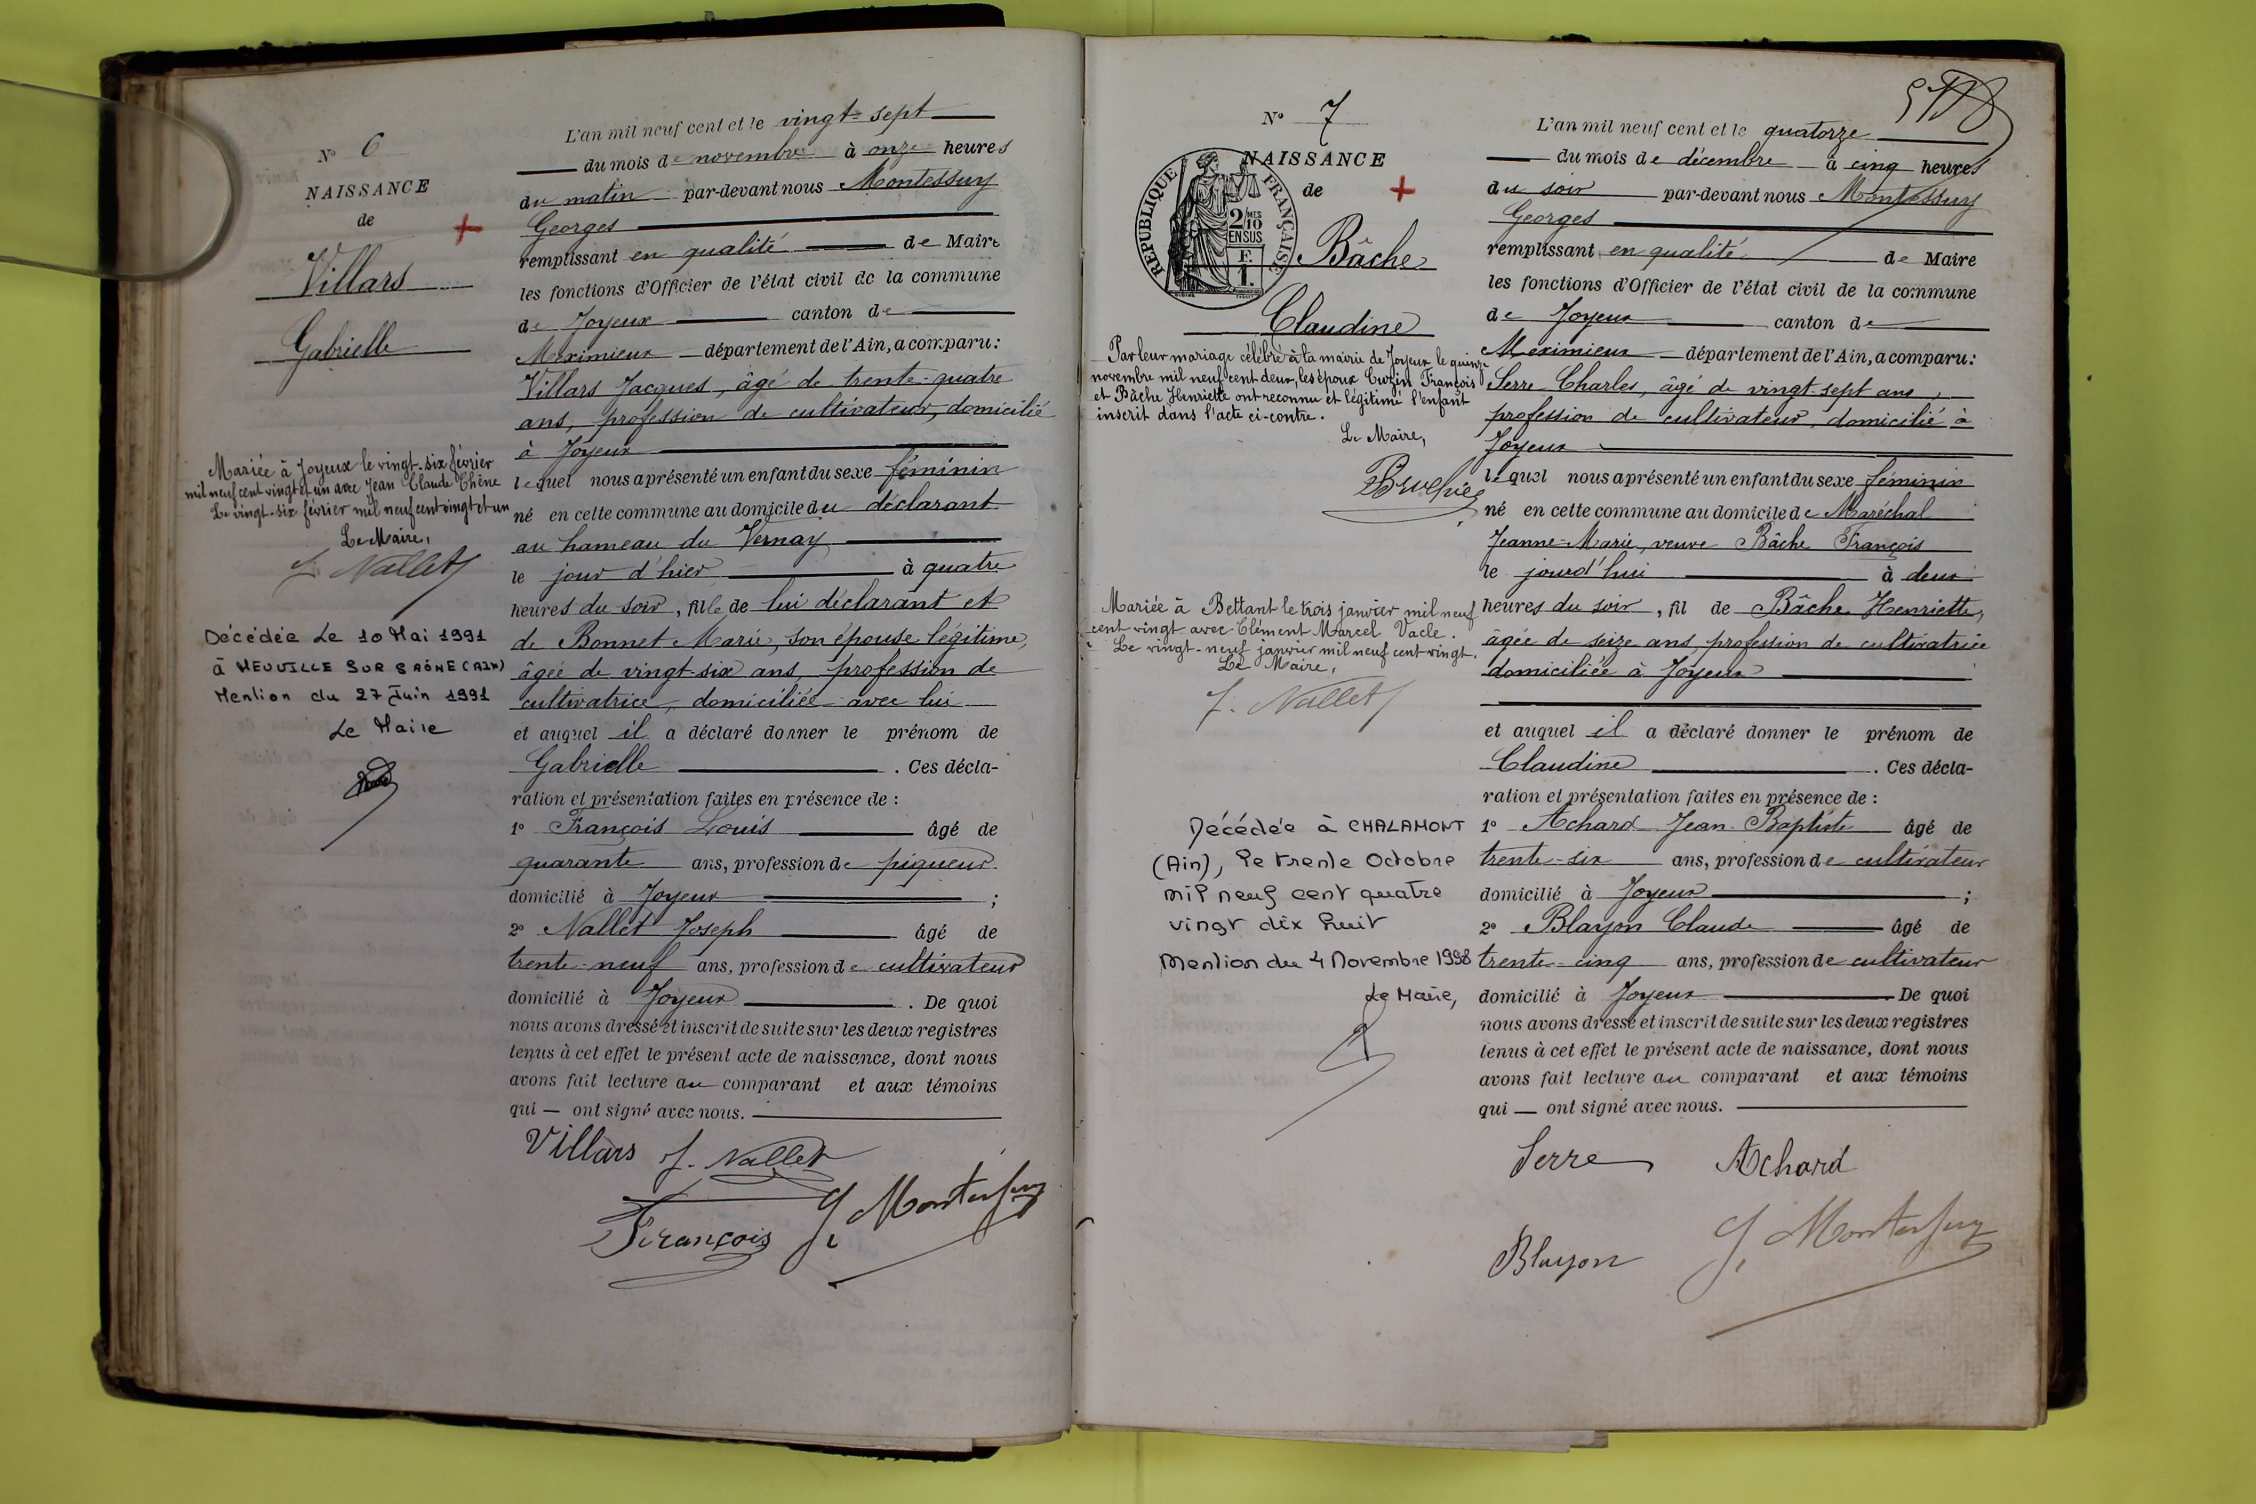 N° 6
NAISSANCE
de
Villars
Gabrielle
Mariée à Joyeux le vingt-six février
mil neuf cent vingt et un avec Jean Claude Chêne
Le vingt-six février mil neuf cent vingt et un
Le Maire,
J. Nallet
Décédée le 10 Mai 1991
à NEUVILLE SUR SAÔNE (AIN)
Mention du 27 Juin 1991
Le Maire
L'an mil neuf cent et le vingt-sept
du mois de novembre à onze heures
du matin par-devant nous Montessuy
Georges
remplissant en qualité de Maire
les fonctions d'Officier de l'état civil de la commune
de Joyeux canton de
Meximieux département de l'Ain, a comparu:
Villars Jacques, âgé de trente-quatre
ans, profession de cultivateur, domicilié
à Joyeux
lequel nous a présenté un enfant du sexe féminin
né en cette commune au domicile du déclarant
au hameau du Vernay
le jour d'hier à quatre
heures du soir, fille de lui déclarant et
de Bonnet Marie, son épouse légitime,
âgée de vingt-six ans, profession de
cultivatrice, domiciliée avec lui
et auquel il a déclaré donner le prénom de
Gabrielle . Ces décla-
ration et présentation faites en présence de :
1° François Louis âgé de
quarante ans, profession de piqueur
domicilié à Joyeux ;
2° Nallet Joseph âgé de
trente-neuf ans, profession de cultivateur
domicilié à Joyeux . De quoi
nous avons dressé et inscrit de suite sur les deux registres
tenus à cet effet le présent acte de naissance, dont nous
avons fait lecture au comparant et aux témoins
qui — ont signé avec nous.
Villars J. Nallet
François G. Montessuy
N° 7
NAISSANCE
de
RÉPUBLIQUE FRANÇAISE
2/10 MES
EN SUS
F.
1.
Bâche
Claudine
Par leur mariage célébré à la mairie de Joyeux le quinze
novembre mil neuf cent deux, les époux Curzin François
et Bâche Henriette ont reconnu et légitimé l'enfant
inscrit dans l'acte ci-contre.
Le Maire,
Mariée à Bettant le trois janvier mil neuf
cent vingt avec Clément Marcel Vacle.
Le vingt-neuf janvier mil neuf cent vingt.
Le Maire,
J. Nallet
Décédée à CHALAMONT
(Ain), le trente Octobre
mil neuf cent quatre
vingt dix huit
Mention du 4 Novembre 1998
Le Maire,
L'an mil neuf cent et le quatorze
du mois de décembre à cinq heures
du soir par-devant nous Montessuy
Georges
remplissant en qualité de Maire
les fonctions d'Officier de l'état civil de la commune
de Joyeux canton de
Meximieux département de l'Ain, a comparu:
Serre Charles, âgé de vingt-sept ans,
profession de cultivateur, domicilié à
Joyeux
lequel nous a présenté un enfant du sexe féminin
né en cette commune au domicile de Maréchal
Jeanne-Marie, veuve Bâche François
le jourd'hui à deux
heures du soir, fil de Bâche Henriette,
âgée de seize ans, profession de cultivatrice
domiciliée à Joyeux
et auquel il a déclaré donner le prénom de
Claudine . Ces décla-
ration et présentation faites en présence de :
1° Achard Jean-Baptiste âgé de
trente-six ans, profession de cultivateur
domicilié à Joyeux ;
2° Blayon Claude âgé de
trente-cinq ans, profession de cultivateur
domicilié à Joyeux . De quoi
nous avons dressé et inscrit de suite sur les deux registres
tenus à cet effet le présent acte de naissance, dont nous
avons fait lecture au comparant et aux témoins
qui — ont signé avec nous.
Serre Achard
Blayon G. Montessuy